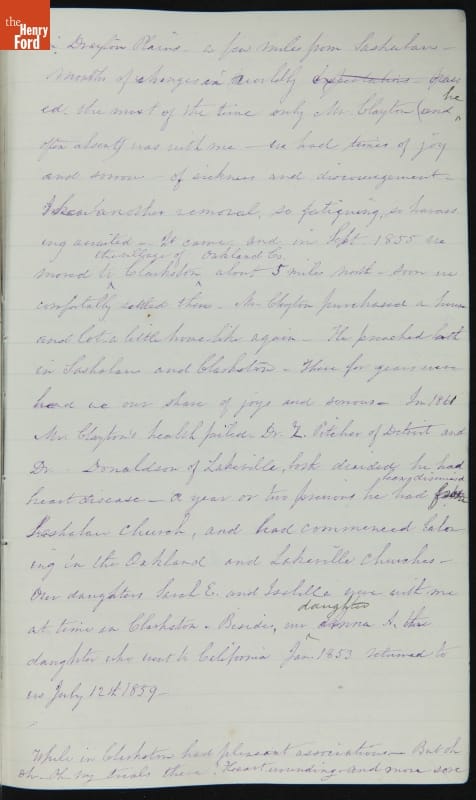 the
Henry
Ford
in Drayton Plains - a few miles from Sashabaw -
Months of changes in worldly expectations - pass
ed. the most of the time only Mr. Clayton (and he
often absent) was with me - we had times of joy
and sorrow - of sickness and discouragement -
another removal, so fatiguing, so harass
ing awaited - It came, and in Sept 1855 we
moved to the village of Clarkston Oakland Co. about 5 miles north - soon we
comfortably settled there - Mr Clayton purchased a house
and lot a little home-like again - He preached both
in Sashabaw and Clarkston - There for years we
had our share of joys and sorrows - In 1861
Mr. Clayton's health failed Dr. Z. Pitcher of Detroit and
Dr. Donaldson of Lakeville, both decided, he had
heart disease - a year or two previous he had been dismissed from
Sashabaw church, and had commenced labor
ing in the Oakland and Lakeville churches -
Our daughters Sarah E. and Isabella were with me
at time in Clarkston - Beside, our daughter Anna A. the
daughter who went to California Jan. 1853 returned to
us July 12th 1859 -
While in Clarkston had pleasant associations - But oh
oh - Oh my trials there! Heart wounding and more sore